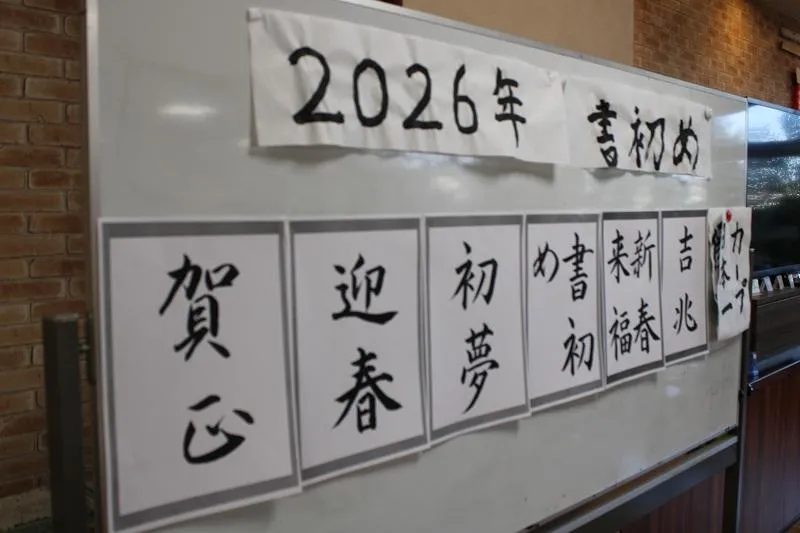 2026年 書初め
賀正
迎春
初夢
書初め
新春
来福
吉兆
カープ
日本一